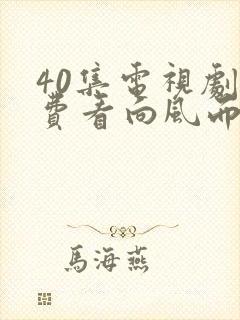 40集電視劇
費看向風而
馬海燕